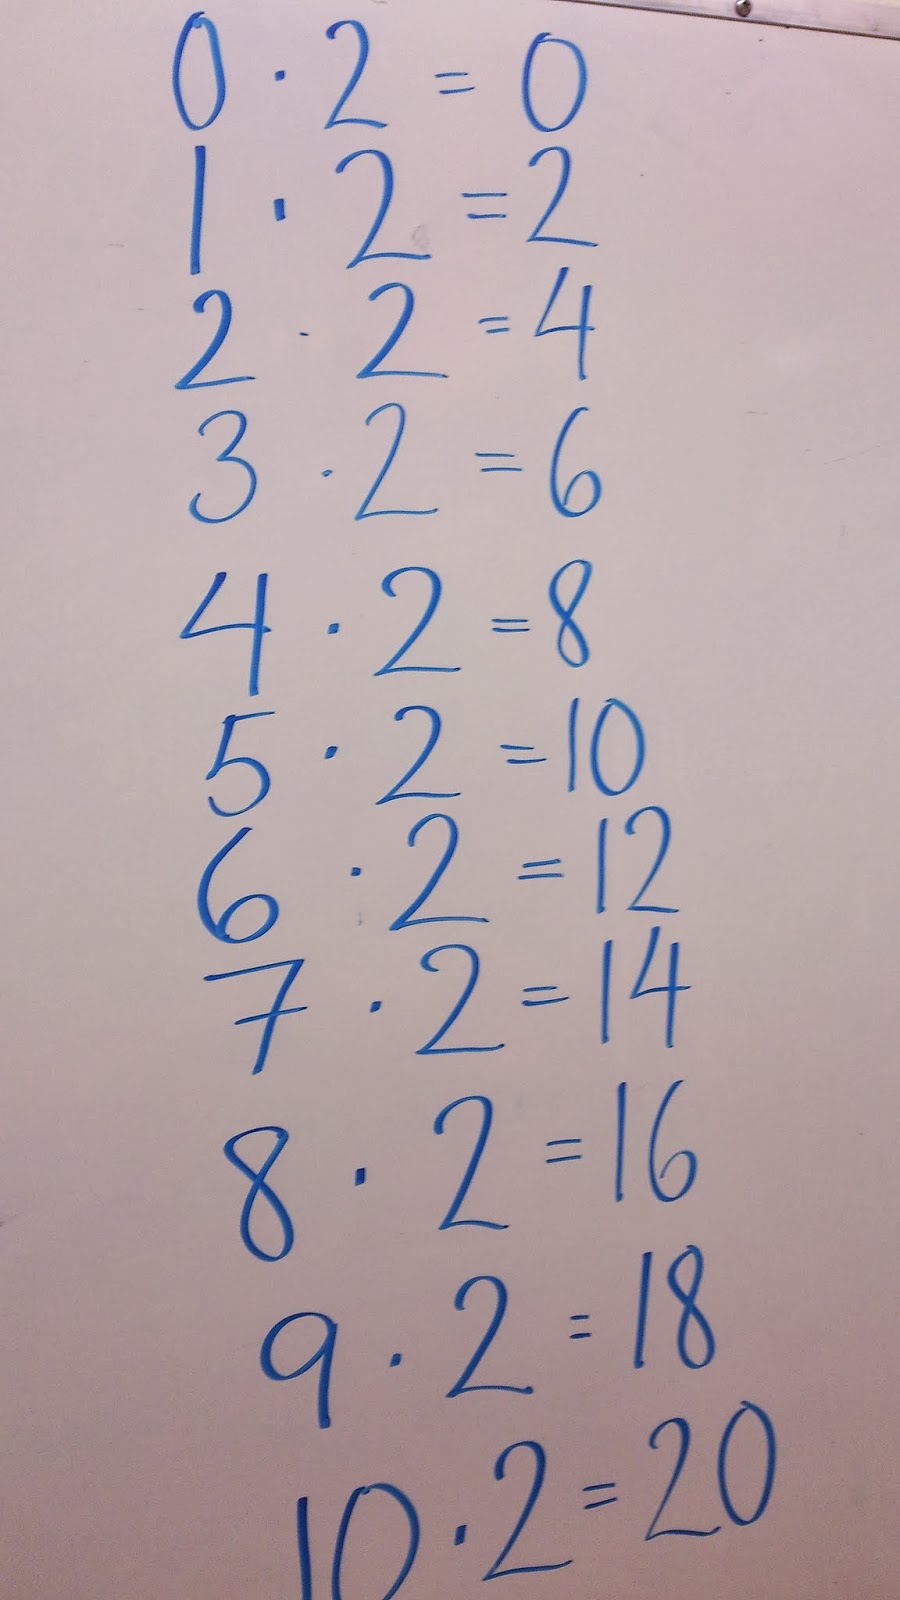 0 · 2 = 0
1 · 2 = 2
2 · 2 = 4
3 · 2 = 6
4 · 2 = 8
5 · 2 = 10
6 · 2 = 12
7 · 2 = 14
8 · 2 = 16
9 · 2 = 18
10 · 2 = 20